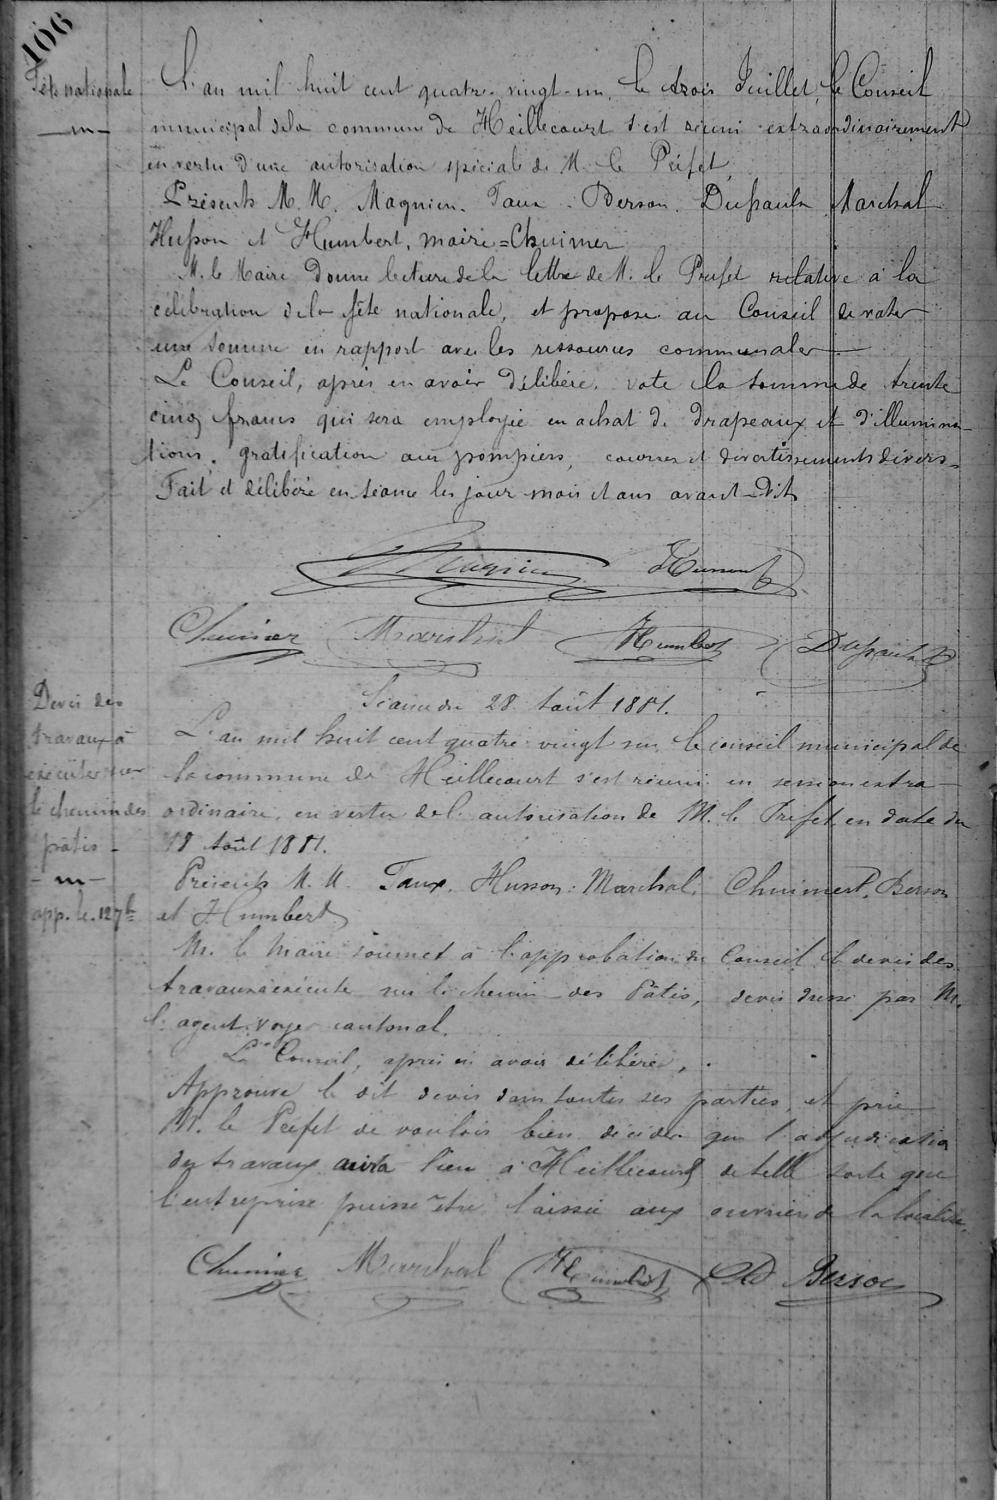 106
Fête nationale
L'an mil huit cent quatre-vingt-un, le trois Juillet, le Conseil
municipal de la commune de Heillecourt s'est réuni extraordinairement
en vertu d'une autorisation spéciale de M. le Préfet,
Présents M. M. Magnien. Taux. Berson. Dupaulx Marchal
Husson et Humbert, maire = Chuimer
M. le Maire donne lecture de la lettre de M. le Préfet relative à la
célébration de la fête nationale, et propose au Conseil de voter
une somme en rapport avec les ressources communales
Le Conseil, après en avoir délibéré, vote la somme de trente
cinq francs qui sera employée en achat de drapeaux et d'illumina-
tions, gratification aux pompiers, courses et divertissements divers =
Fait et délibéré en séance les jour mois et ans avant-dits
Magnien Husson
Chuimer Marchal Humbert Dupaulx
Séance du 28 Août 1881.
Devis des
travaux à
exécuter sur
le chemin des
pâtis -
app. le 12 7b
L'an mil huit cent quatre vingt un, le conseil municipal de
la commune de Heillecourt s'est réuni en session extra-
ordinaire, en vertu de l'autorisation de M. le Préfet en date du
18 Août 1881.
Présents M. M. Taux. Husson. Marchal, Chuimer, Berson
et Humbert
M. le Maire soumet à l'approbation du Conseil le devis des
travaux à exécuter sur le chemin des Pâtis, devis dressé par M.
l'agent-voyer cantonal.
Le Conseil, après en avoir délibéré,
Approuve le dit devis dans toutes ses parties, et prie
M. le Préfet de vouloir bien décider que l'adjudication
des travaux aura lieu à Heillecourt de telle sorte que
l'entreprise puisse être laissée aux ouvriers de la localité.
Chuimer Marchal Humbert Berson